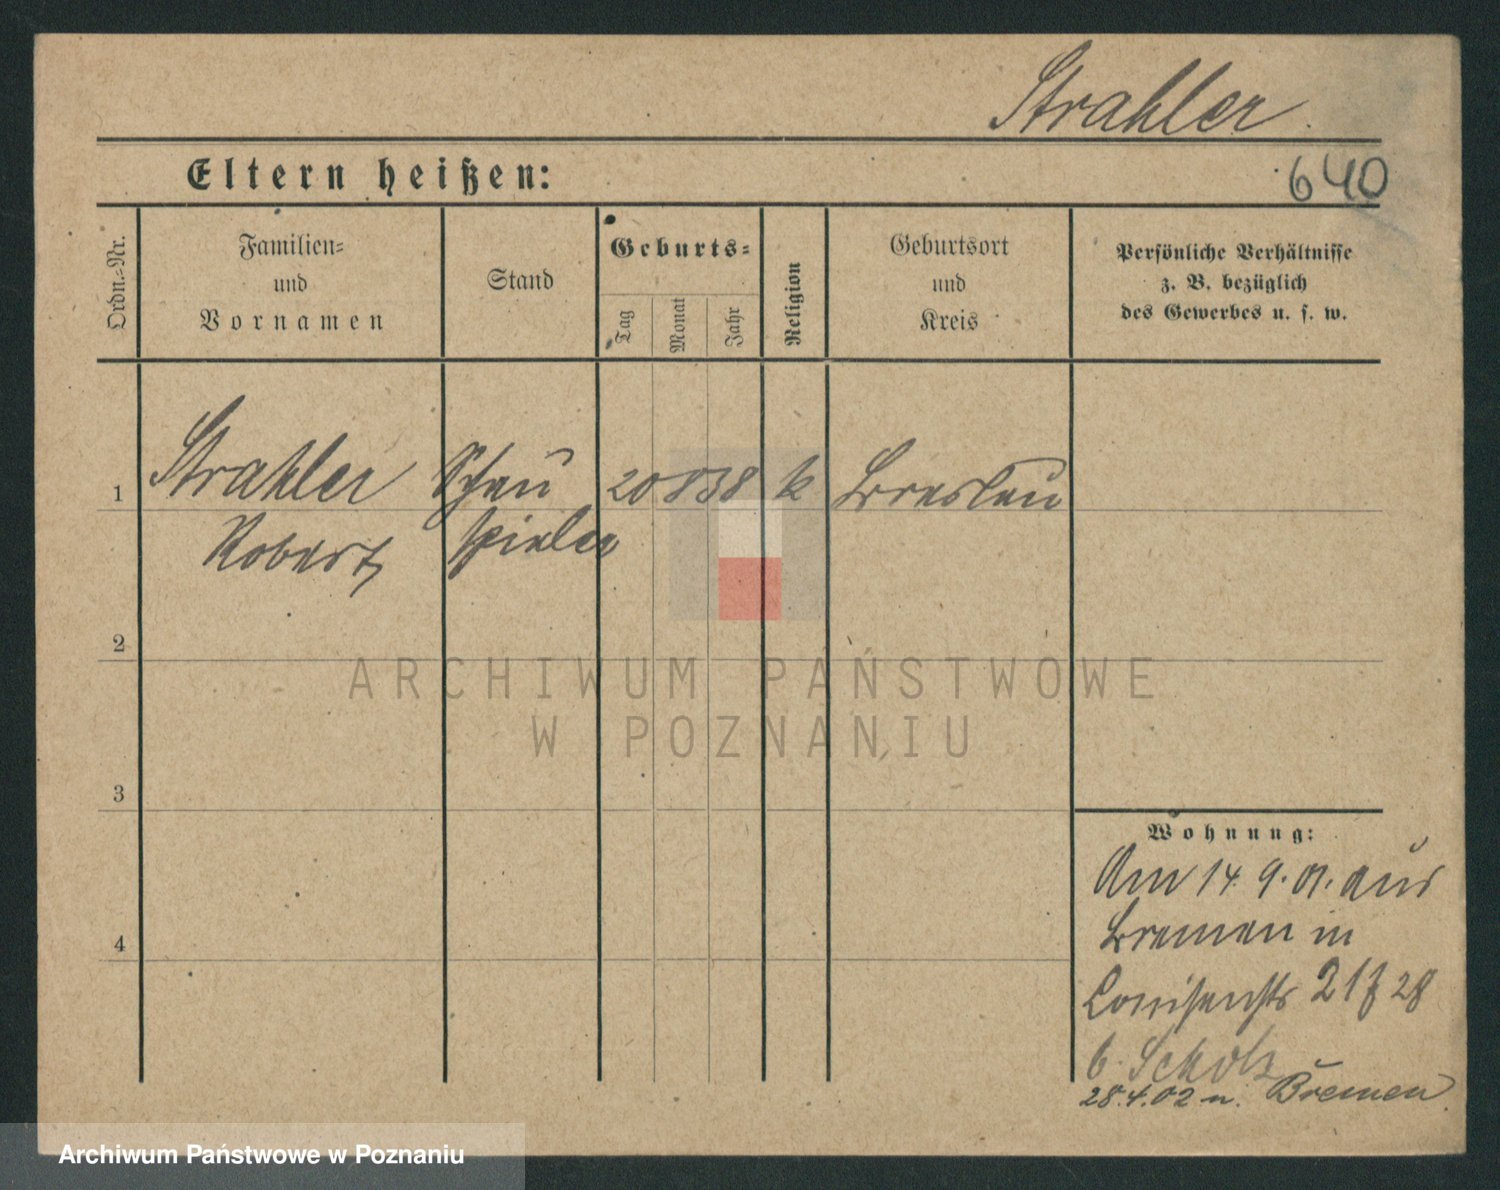 Strahler
Eltern heißen:
640
Ordn.-Nr.
Familien-
und
Vornamen
Stand
Geburts-
Tag
Monat
Jahr
Religion
Geburtsort
und
Kreis
Persönliche Verhältnisse
z. B. bezüglich
des Gewerbes u. s. w.
1 Strahler Schau 20 8 38 k Breslau
Robert spieler
2
ARCHIWUM PAŃSTWOWE
W POZNANIU
3
Wohnung:
Am 14. 9. 01. aus
Bremen in
4
Louisenstr 21 28
b. Scholz
28.4.02 n. Bremen
Archiwum Państwowe w Poznaniu